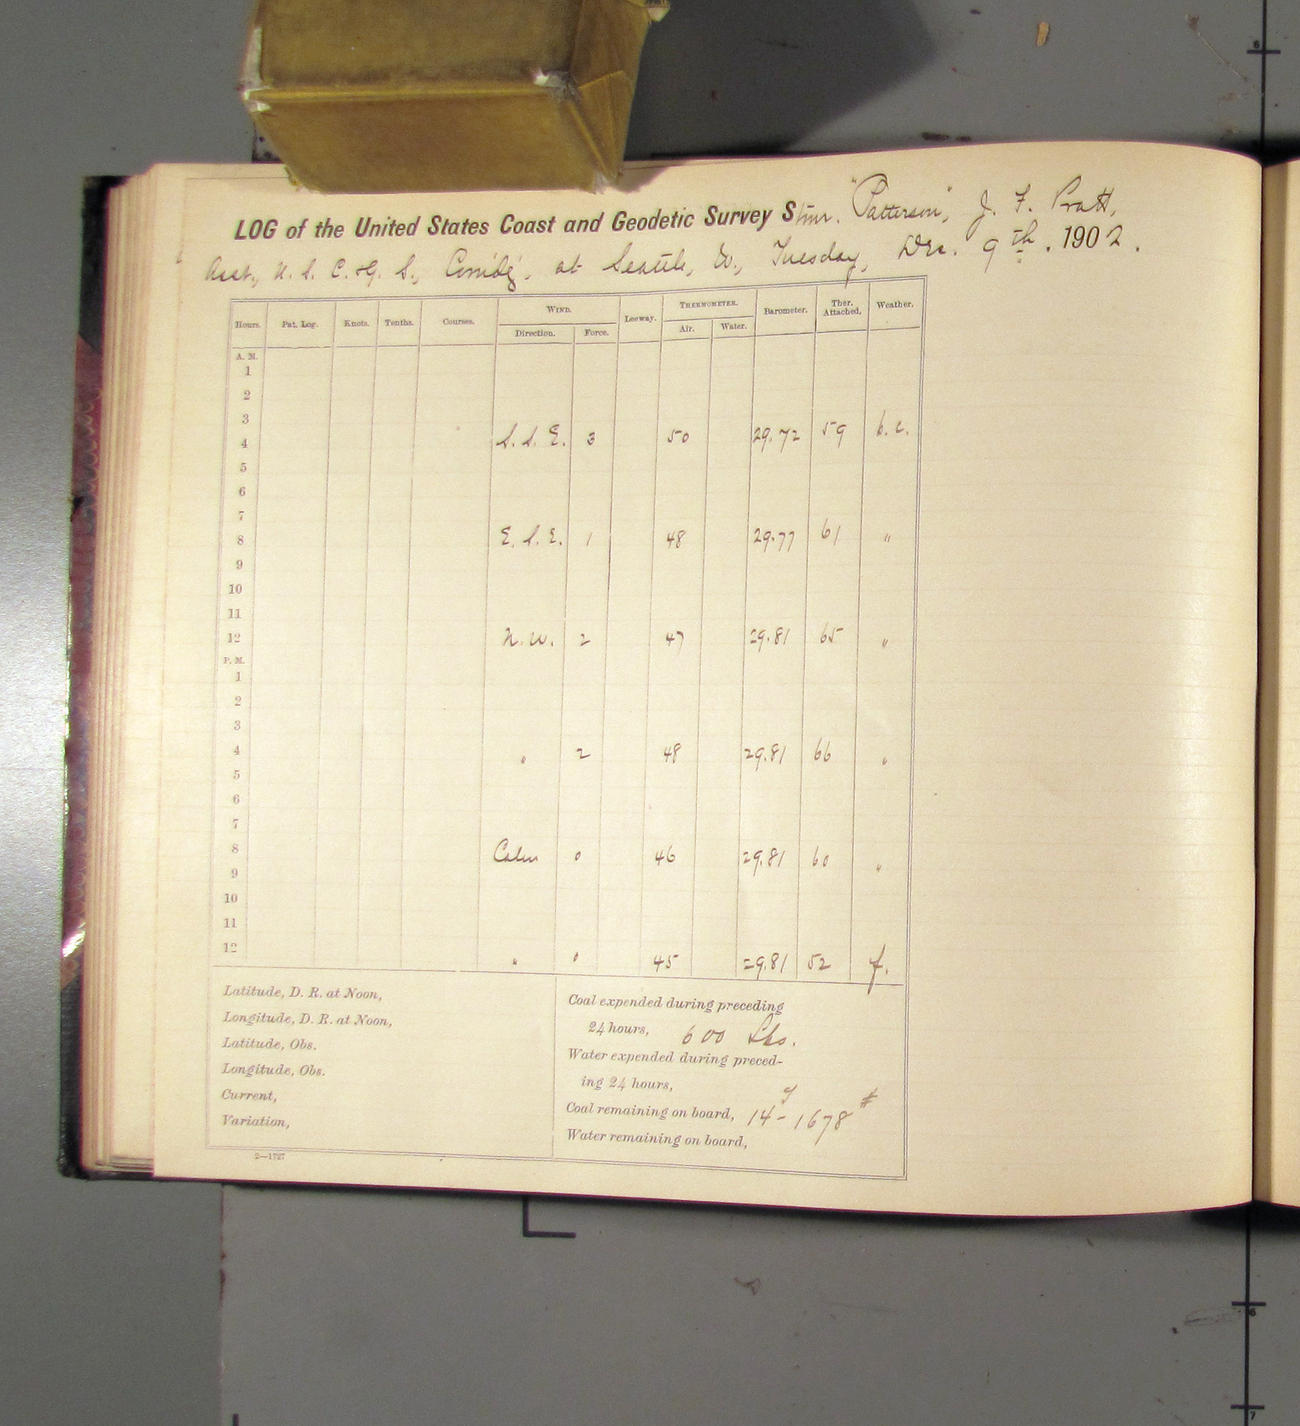 LOG of the United States Coast and Geodetic Survey Stmr. "Patterson", J. F. Pratt,
Asst., U. S. C. & G. S., Com'd'g., at Seattle, W., Tuesday, Dec. 9th. 1902.
Hours. Pat. Log. Knots. Tenths. Courses. WIND. Direction. Force. Leeway. THERMOMETER. Air. Water. Barometer. Ther. Attached. Weather.
A. M.
1
2
3
4 S. S. E. 3 50 29.72 59 b. c.
5
6
7
8 E. S. E. 1 48 29.77 61 "
9
10
11
12 N. W. 2 47 29.81 65 "
P. M.
1
2
3
4 " 2 48 29.81 66 "
5
6
7
8 Calm 0 46 29.81 60 "
9
10
11
12 " 0 45 29.81 52 f.
Latitude, D. R. at Noon,
Longitude, D. R. at Noon,
Latitude, Obs.
Longitude, Obs.
Current,
Variation,
Coal expended during preceding
24 hours, 600 Lbs.
Water expended during preced-
ing 24 hours,
Coal remaining on board, 14 - 1678 #
Water remaining on board,
2—1727
6
6
7